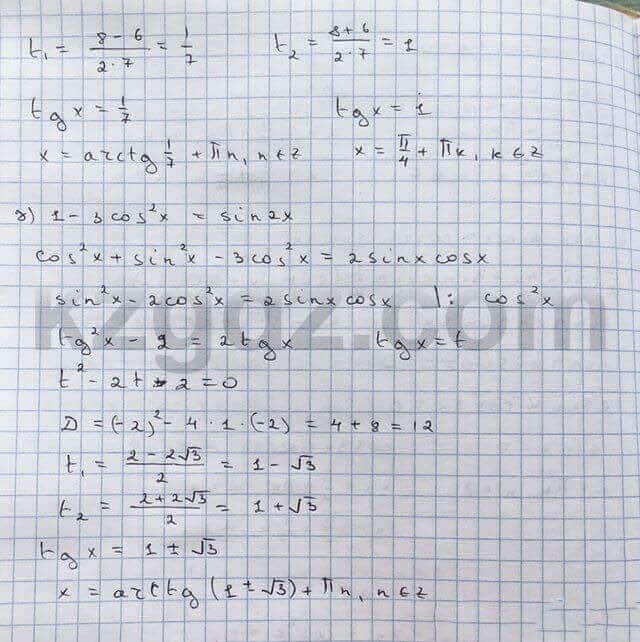 t₁ = (8 − 6)/(2 · 7) = 1/7 t₂ = (8 + 6)/(2 · 7) = 1
tg x = 1/7 tg x = 1
x = arctg 1/7 + πn, n ∈ Z x = π/4 + πk, k ∈ Z
г) 1 − 3cos²x = sin2x
cos²x + sin²x − 3cos²x = 2sinx cosx
sin²x − 2cos²x = 2sinx cosx |: cos²x
kzgdz.com
tg²x − 2 = 2tgx tgx = t
t² − 2t − 2 = 0
D = (−2)² − 4 · 1 · (−2) = 4 + 8 = 12
t₁ = (2 − 2√3)/2 = 1 − √3
t₂ = (2 + 2√3)/2 = 1 + √3
tg x = 1 ± √3
x = arctg (1 ± √3) + πn, n ∈ Z